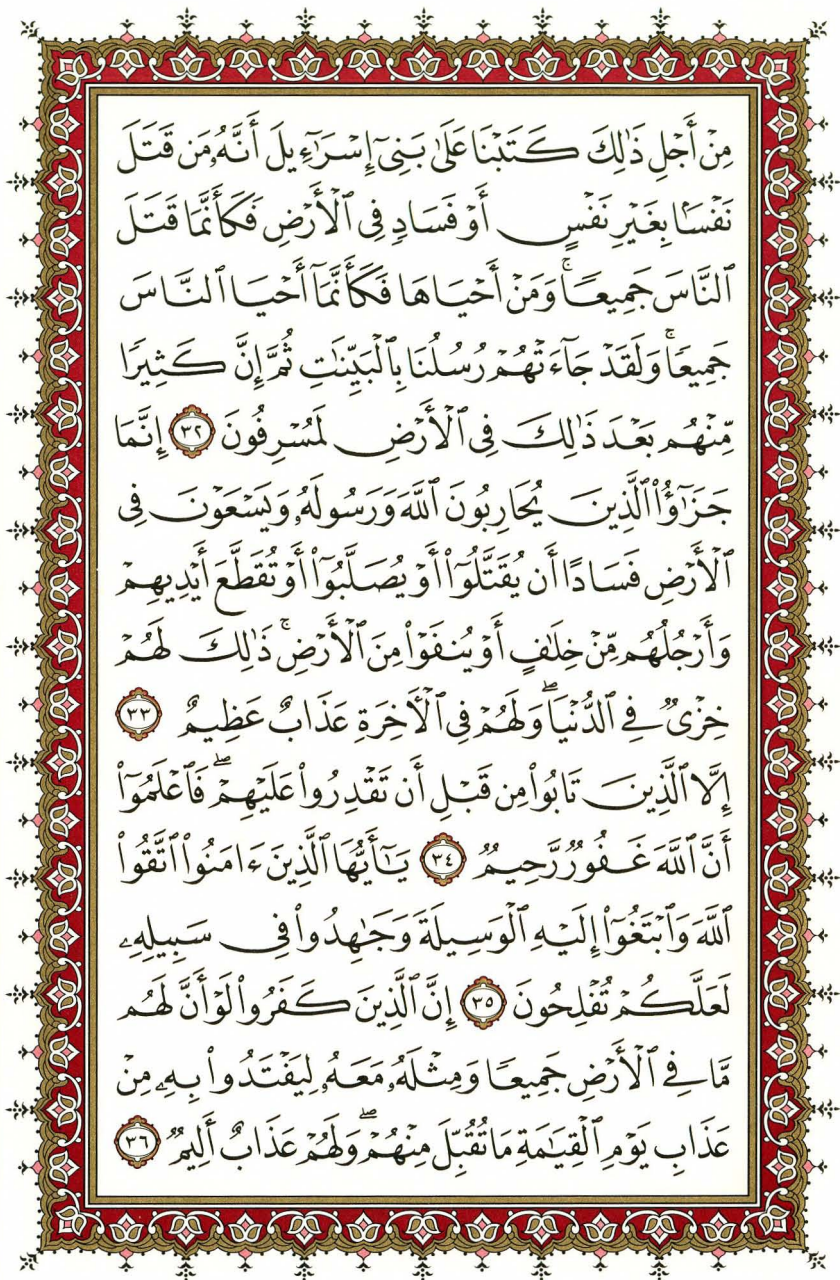 مِنْ أَجْلِ ذَٰلِكَ كَتَبْنَا عَلَىٰ بَنِىٓ إِسْرَٰٓءِيلَ أَنَّهُۥ مَن قَتَلَ
نَفْسًۢا بِغَيْرِ نَفْسٍ أَوْ فَسَادٍ فِى ٱلْأَرْضِ فَكَأَنَّمَا قَتَلَ
ٱلنَّاسَ جَمِيعًا ۚ وَمَنْ أَحْيَاهَا فَكَأَنَّمَآ أَحْيَا ٱلنَّاسَ
جَمِيعًا ۚ وَلَقَدْ جَآءَتْهُمْ رُسُلُنَا بِٱلْبَيِّنَٰتِ ثُمَّ إِنَّ كَثِيرًا
مِّنْهُم بَعْدَ ذَٰلِكَ فِى ٱلْأَرْضِ لَمُسْرِفُونَ ٣٢ إِنَّمَا
جَزَٰٓؤُا۟ ٱلَّذِينَ يُحَارِبُونَ ٱللَّهَ وَرَسُولَهُۥ وَيَسْعَوْنَ فِى
ٱلْأَرْضِ فَسَادًا أَن يُقَتَّلُوٓا۟ أَوْ يُصَلَّبُوٓا۟ أَوْ تُقَطَّعَ أَيْدِيهِمْ
وَأَرْجُلُهُم مِّنْ خِلَٰفٍ أَوْ يُنفَوْا۟ مِنَ ٱلْأَرْضِ ۚ ذَٰلِكَ لَهُمْ
خِزْىٌ فِى ٱلدُّنْيَا ۖ وَلَهُمْ فِى ٱلْءَاخِرَةِ عَذَابٌ عَظِيمٌ ٣٣
إِلَّا ٱلَّذِينَ تَابُوا۟ مِن قَبْلِ أَن تَقْدِرُوا۟ عَلَيْهِمْ ۖ فَٱعْلَمُوٓا۟
أَنَّ ٱللَّهَ غَفُورٌ رَّحِيمٌ ٣٤ يَٰٓأَيُّهَا ٱلَّذِينَ ءَامَنُوا۟ ٱتَّقُوا۟
ٱللَّهَ وَٱبْتَغُوٓا۟ إِلَيْهِ ٱلْوَسِيلَةَ وَجَٰهِدُوا۟ فِى سَبِيلِهِۦ
لَعَلَّكُمْ تُفْلِحُونَ ٣٥ إِنَّ ٱلَّذِينَ كَفَرُوا۟ لَوْ أَنَّ لَهُم
مَّا فِى ٱلْأَرْضِ جَمِيعًا وَمِثْلَهُۥ مَعَهُۥ لِيَفْتَدُوا۟ بِهِۦ مِنْ
عَذَابِ يَوْمِ ٱلْقِيَٰمَةِ مَا تُقُبِّلَ مِنْهُمْ ۖ وَلَهُمْ عَذَابٌ أَلِيمٌ ٣٦